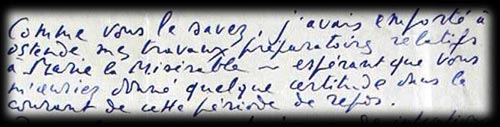 Comme vous le savez, j'avais emporté à
Ostende mes travaux préparatoires relatifs
à Marie la Misérable – espérant que vous
m'auriez donné quelque certitude dans le
courant de cette période de repos.